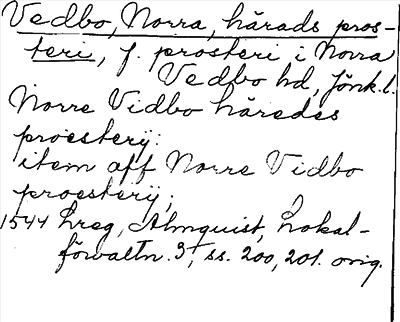 Vedbo, Norra, härads pros-
teri, f. prosteri i Norra
Vedbo hd, Jönk.l.
Norre Vidbo häredes
proesterÿ:
item aff Norre Vidbo
proesterÿ;
1544 Lreg, Almquist, Lokal-
förvaltn. 3, ss. 200, 201. orig.